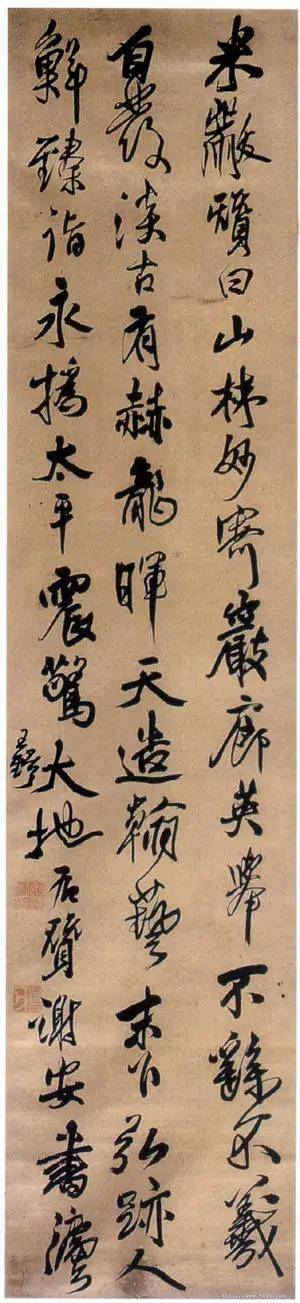 米黻贊曰山林妙寄巖廊英舉不繇不羲
自發淡古有赫龍暉天造翰藝末以弘跡人
鮮臻詣永播太平震驚大地右贊謝安書
王鐸